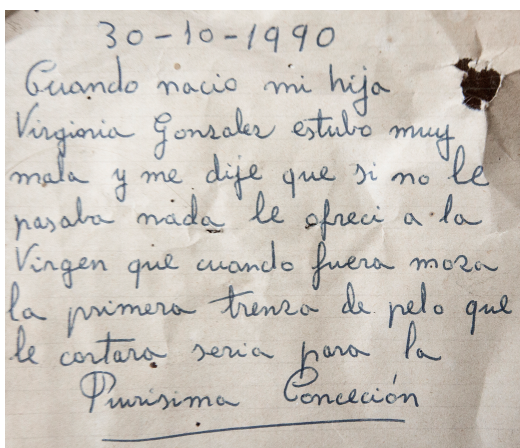 30-10-1990
Cuando nacio mi hija
Virginia Gonzalez estubo muy
mala y me dije que si no le
pasaba nada le ofreci a la
Virgen que cuando fuera moza
la primera trenza de pelo que
le cortara seria para la
Purisima Conceción